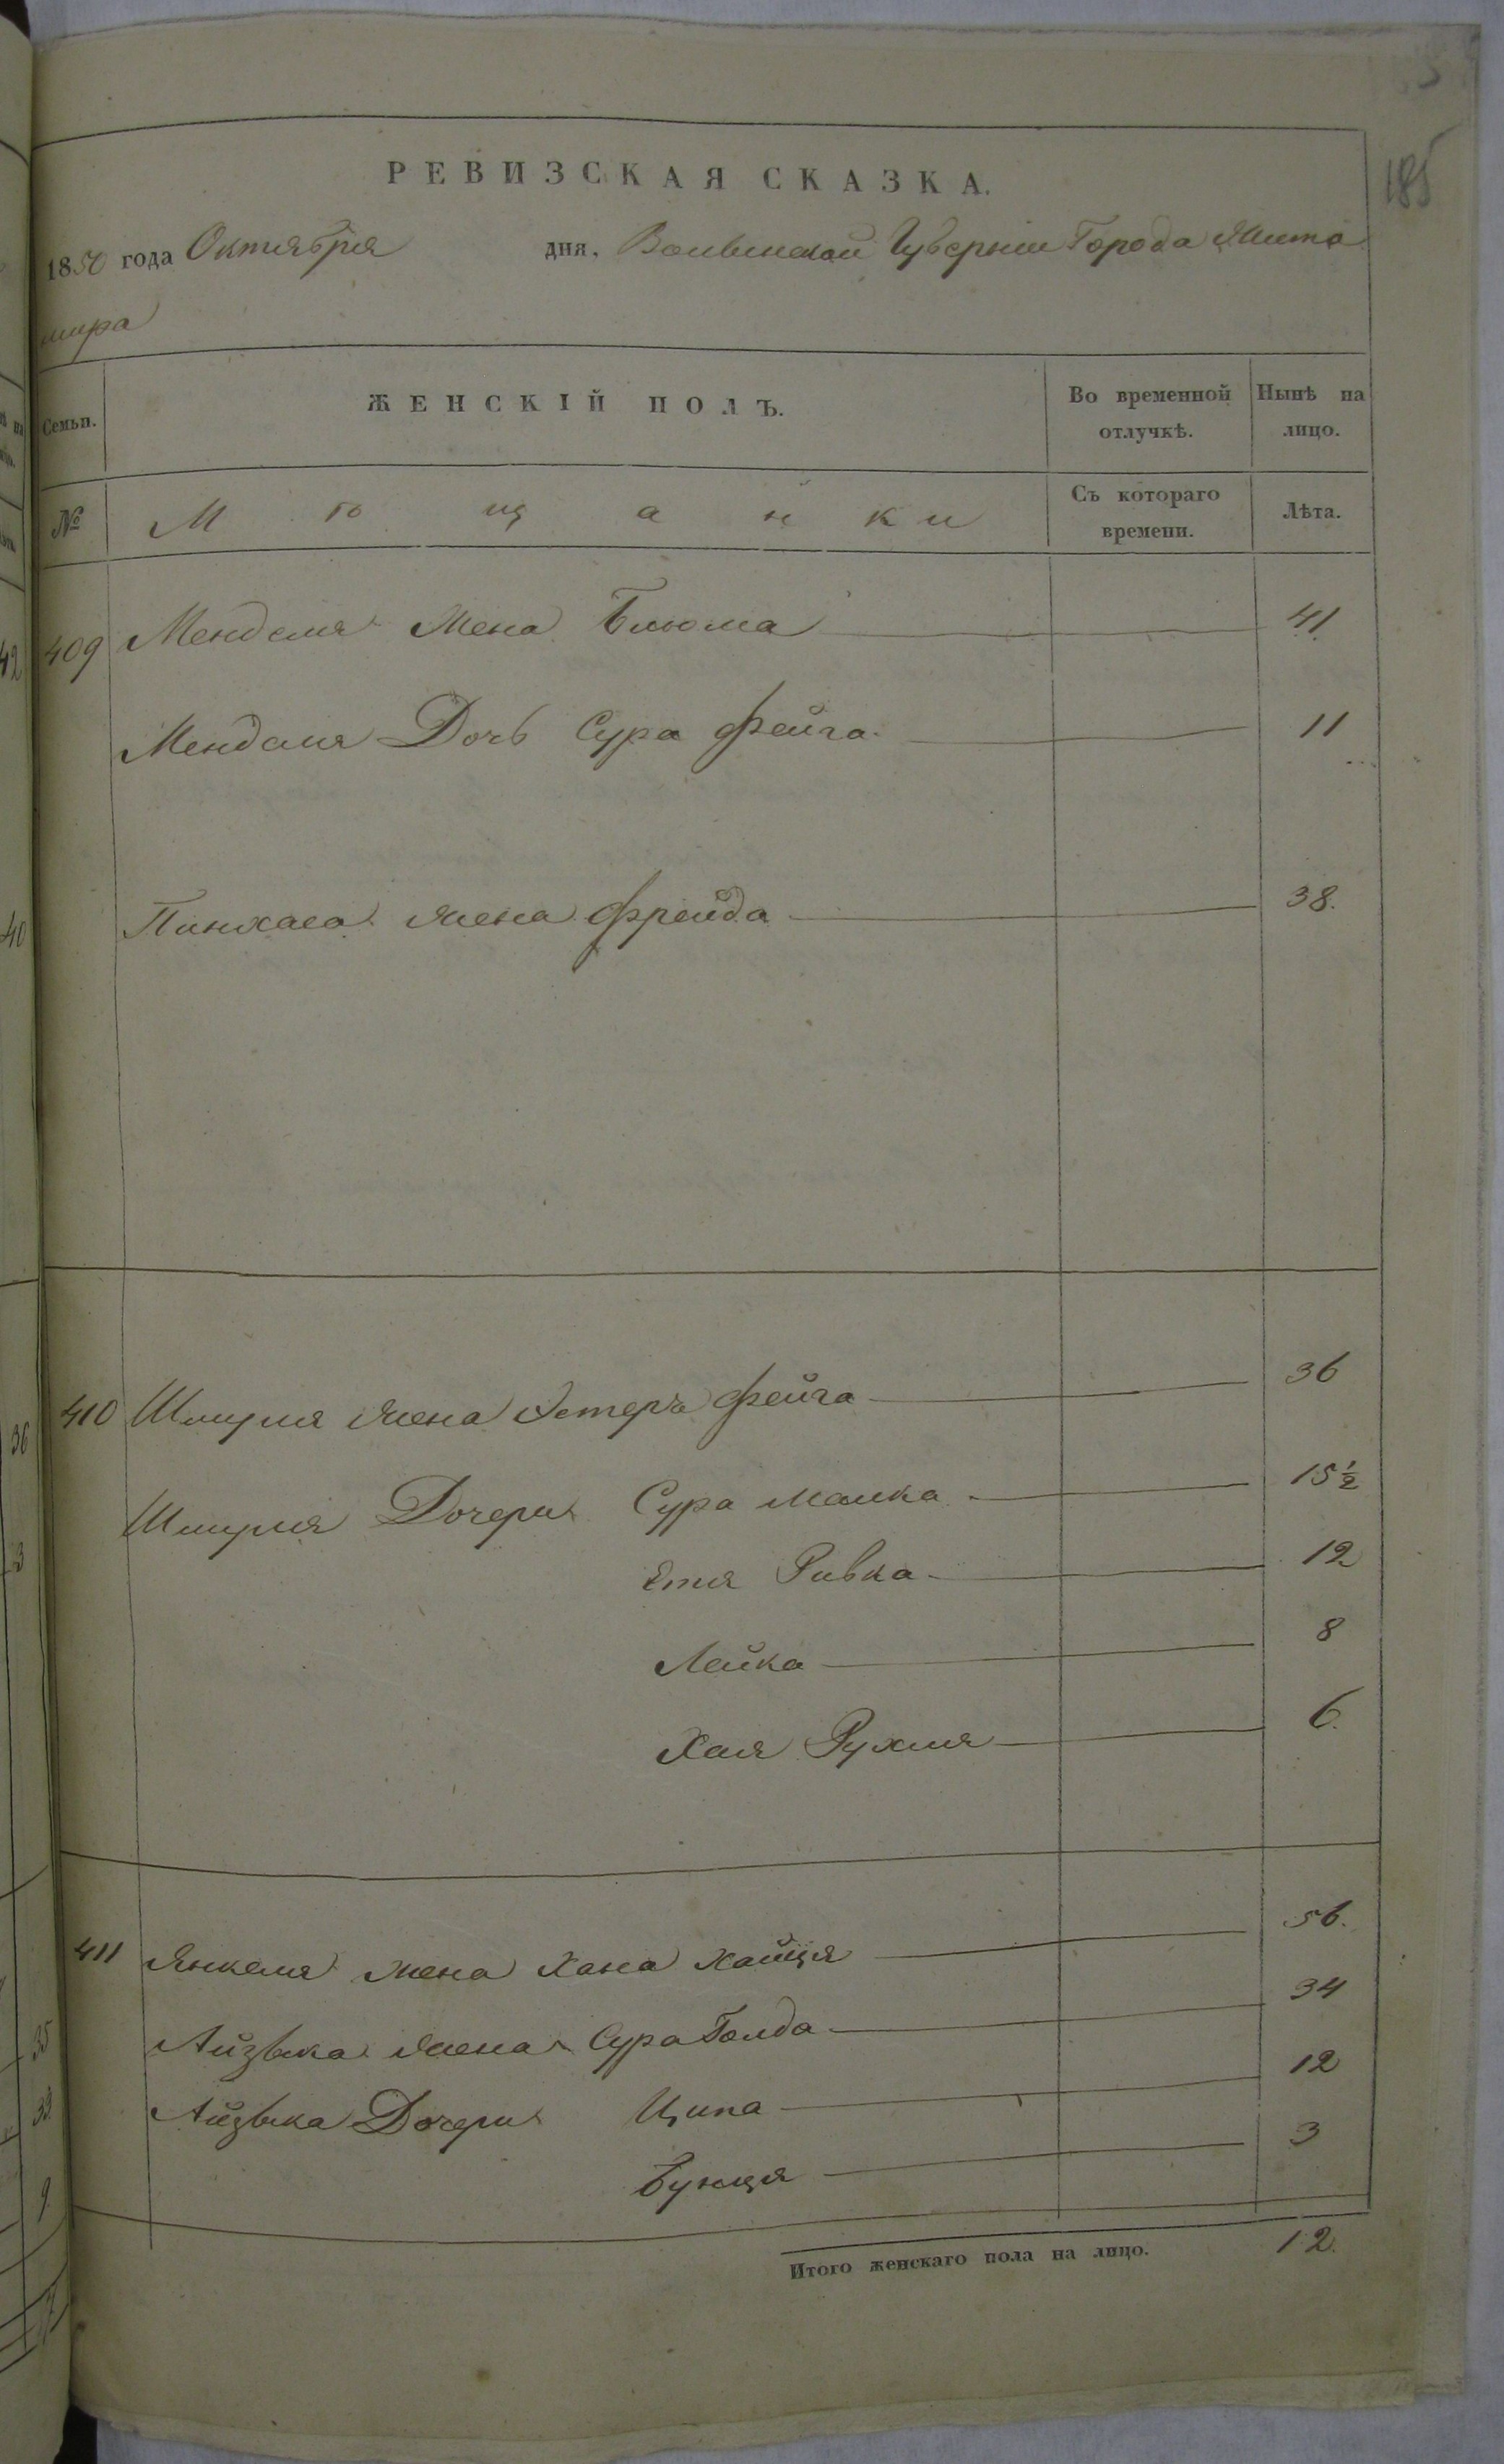 185
РЕВИЗСКАЯ СКАЗКА.
1850 года Октября дня, Волынской Губерніи Города Жито
мира
Семьи. ЖЕНСКІЙ ПОЛЪ. Во временной отлучкѣ. Нынѣ на лицо.
№ Мѣщанки Съ котораго времени. Лѣта.
409 Менделя Жена Блюма 41
Менделя Дочь Сура Фейга 11
Пинхаса жена Фрейда 38.
410 Шмуля жена Эстеръ Фейга 36
Шмуля Дочери Сура Малка 15½
Етя Ривка 12
Лейка 8
Хая Рухля 6.
411 Янкеля жена Хана Хайця 56.
Айзыка жена Сура Голда 34
Айзыка Дочери Ципа 12
Бунця 3
Итого женскаго пола на лицо. 12.